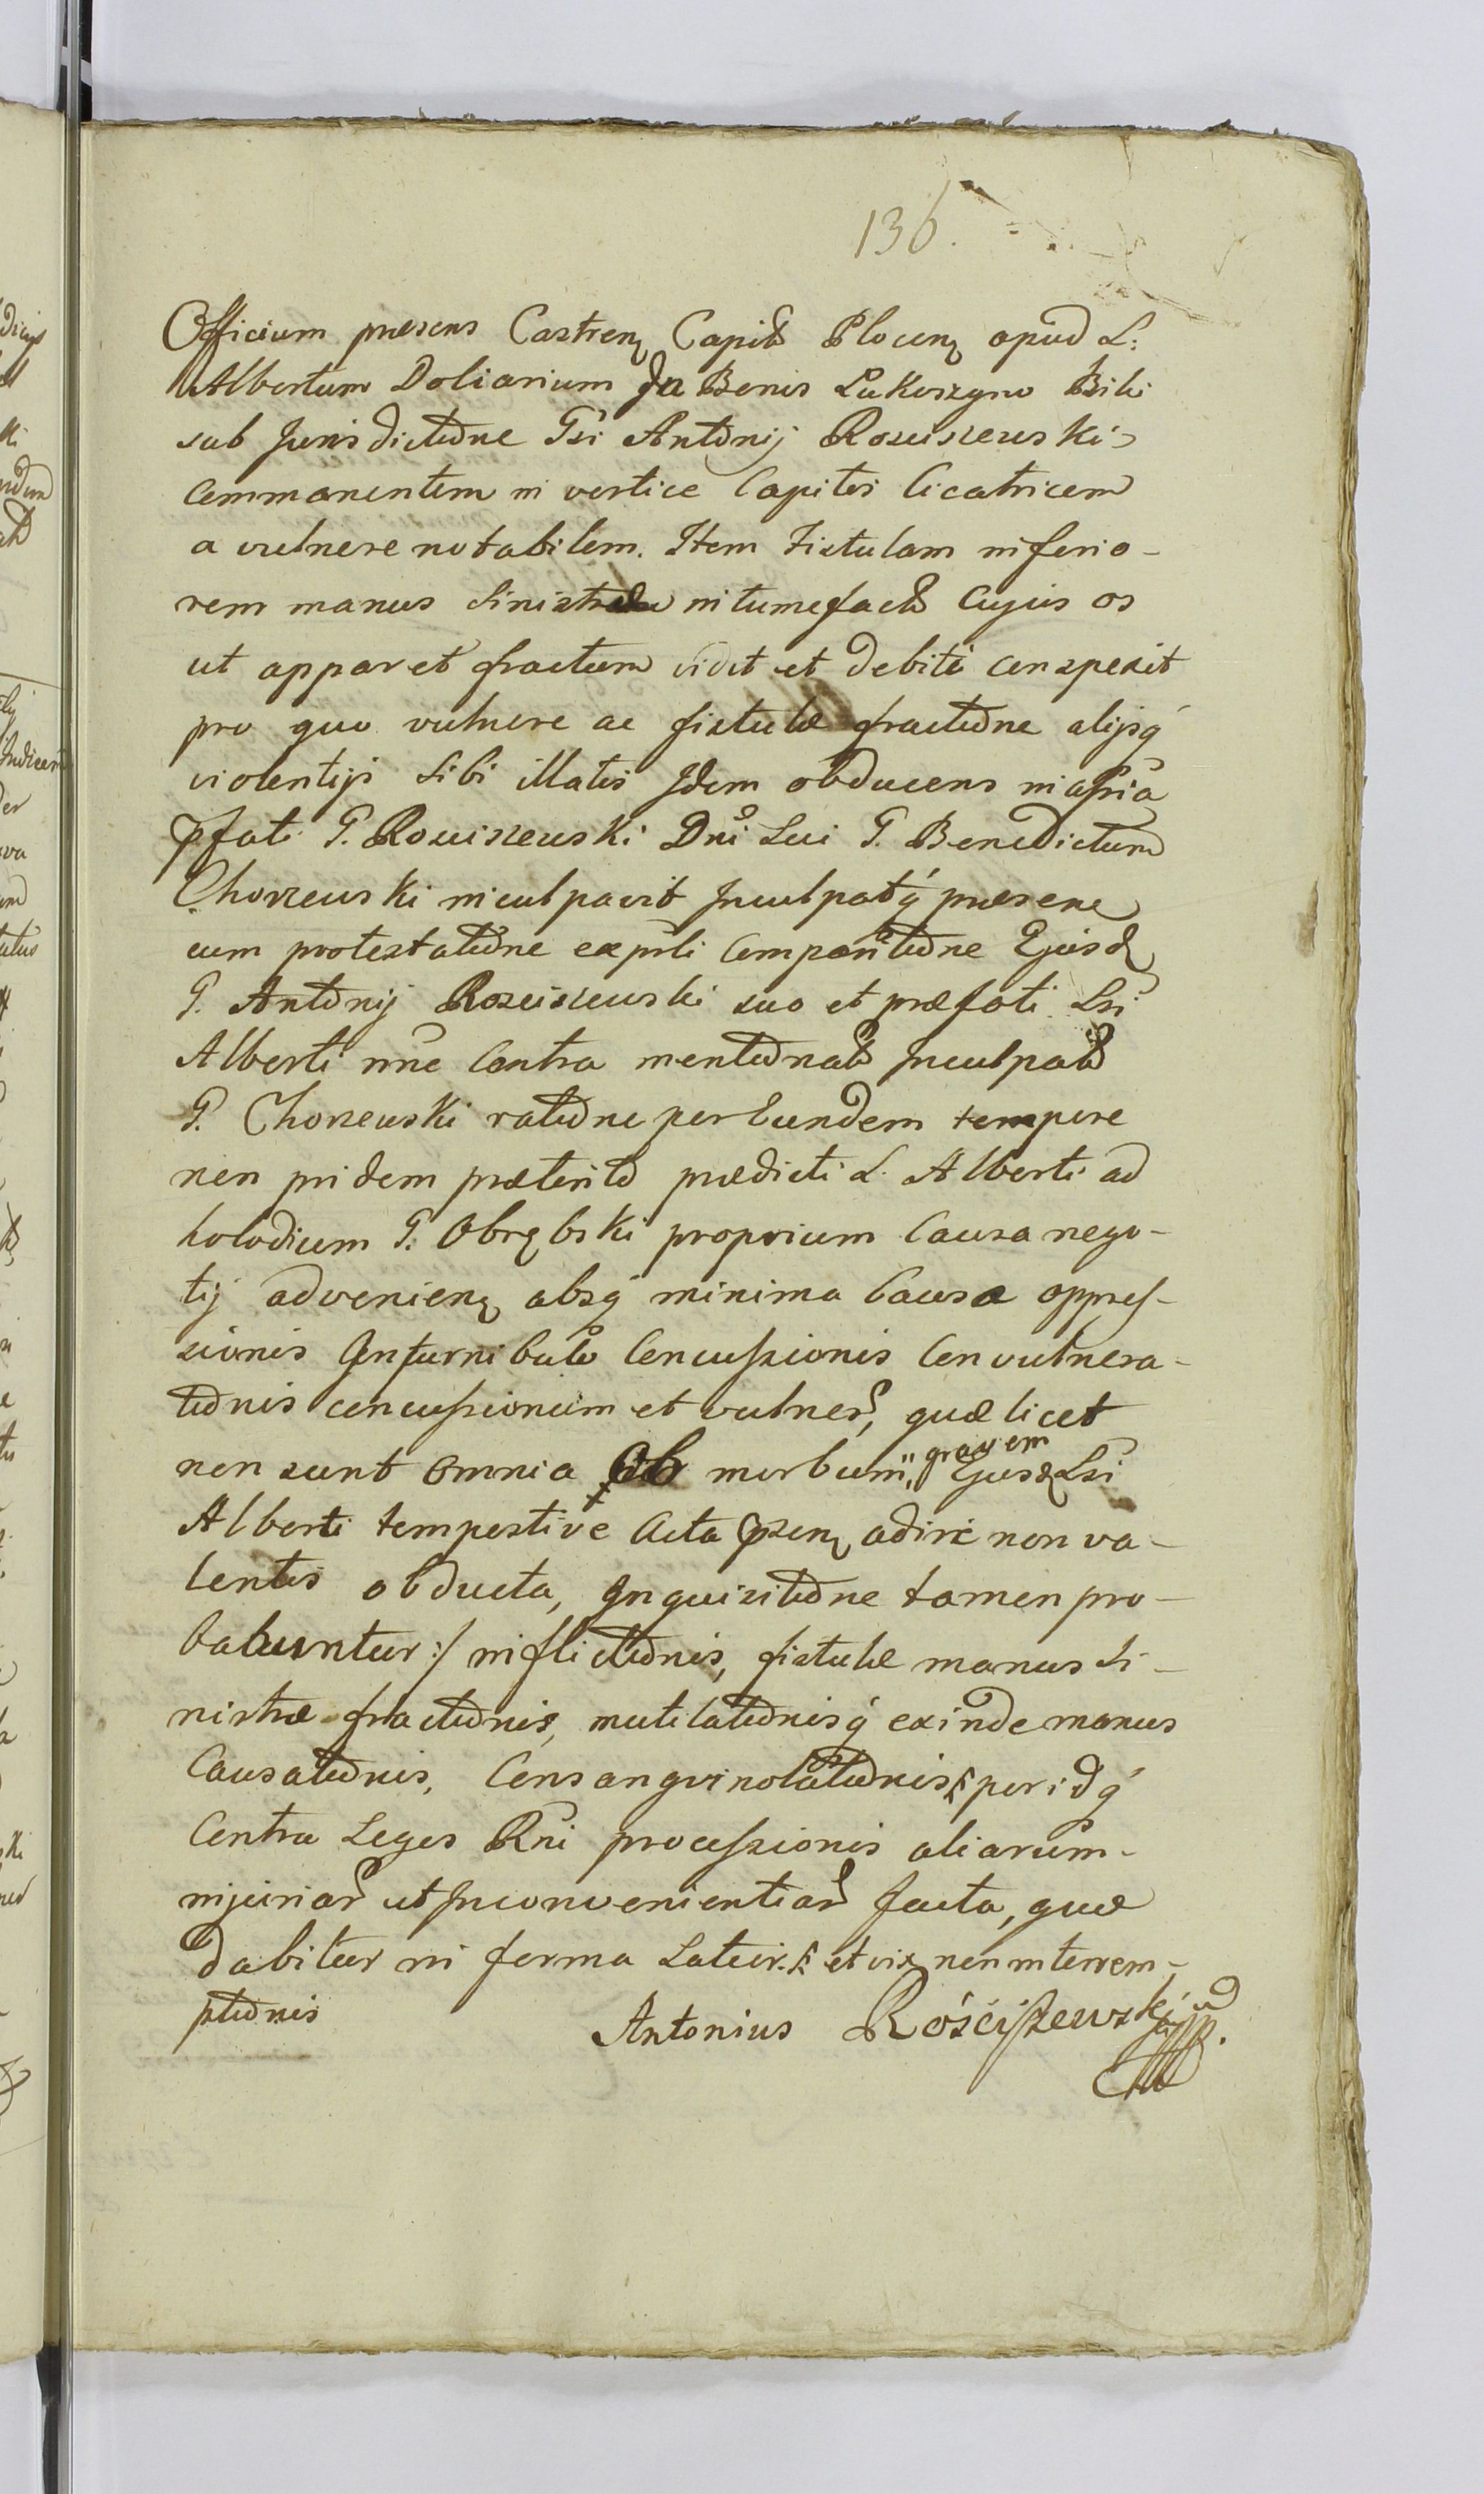 136.
Officium præsens Castren Capit Plocen apud L:
Albertum Doliarium de Bonis Łukoszyno Biki
sub Jurisdictione Gsi Antonij Rosciszewski
commanentem in vertice Capitis Cicatricem
a vulnere notabilem. Item Fistulam inferio-
rem manus sinistræ intumefact Cujus os
ut apparet fractum vidit et debite conspexit
pro quo vulnere ac fistulæ fractione alijsq
violentijs sibi illatis Idem obducens in assia
pfati G. Rosciszewski Dni Sui G. Benedictum
Chorzewski inculpavit Inculpatq præsens
cum protestatione expsli Comparitione Ejusd
G. Antonij Rosciszewski suo et præfati Lsi
Alberti nne Contra mentionat Inculpat
G. Chorzewski ratione per Eundem tempore
non pridem præterito prædicti L. Alberti ad
holodium G. Obrębski proprium Causa nego-
tij advenien absq minima Causa oppres-
sionis Inturnibulo Concussionis Convulnera-
tionis concussionum et vulner, quæ licet
non sunt Omnia Ob morbum gravem Ejusd Lsi
Alberti tempestive Acta psen adire non va-
lentis obducta, Inquisitione tamen pro-
babuntur :/ inflictionis, fistulæ manus si-
nistræ fractionis, mutilationisq exinde manus
Causationis, Consangvinolationis per idq
Contra Leges Rni processionis aliarum-
injuriar et Inconvenientiar facta, quæ
dabitur in forma Latior. et vix non interem-
ptionis
Antonius Rościszewski